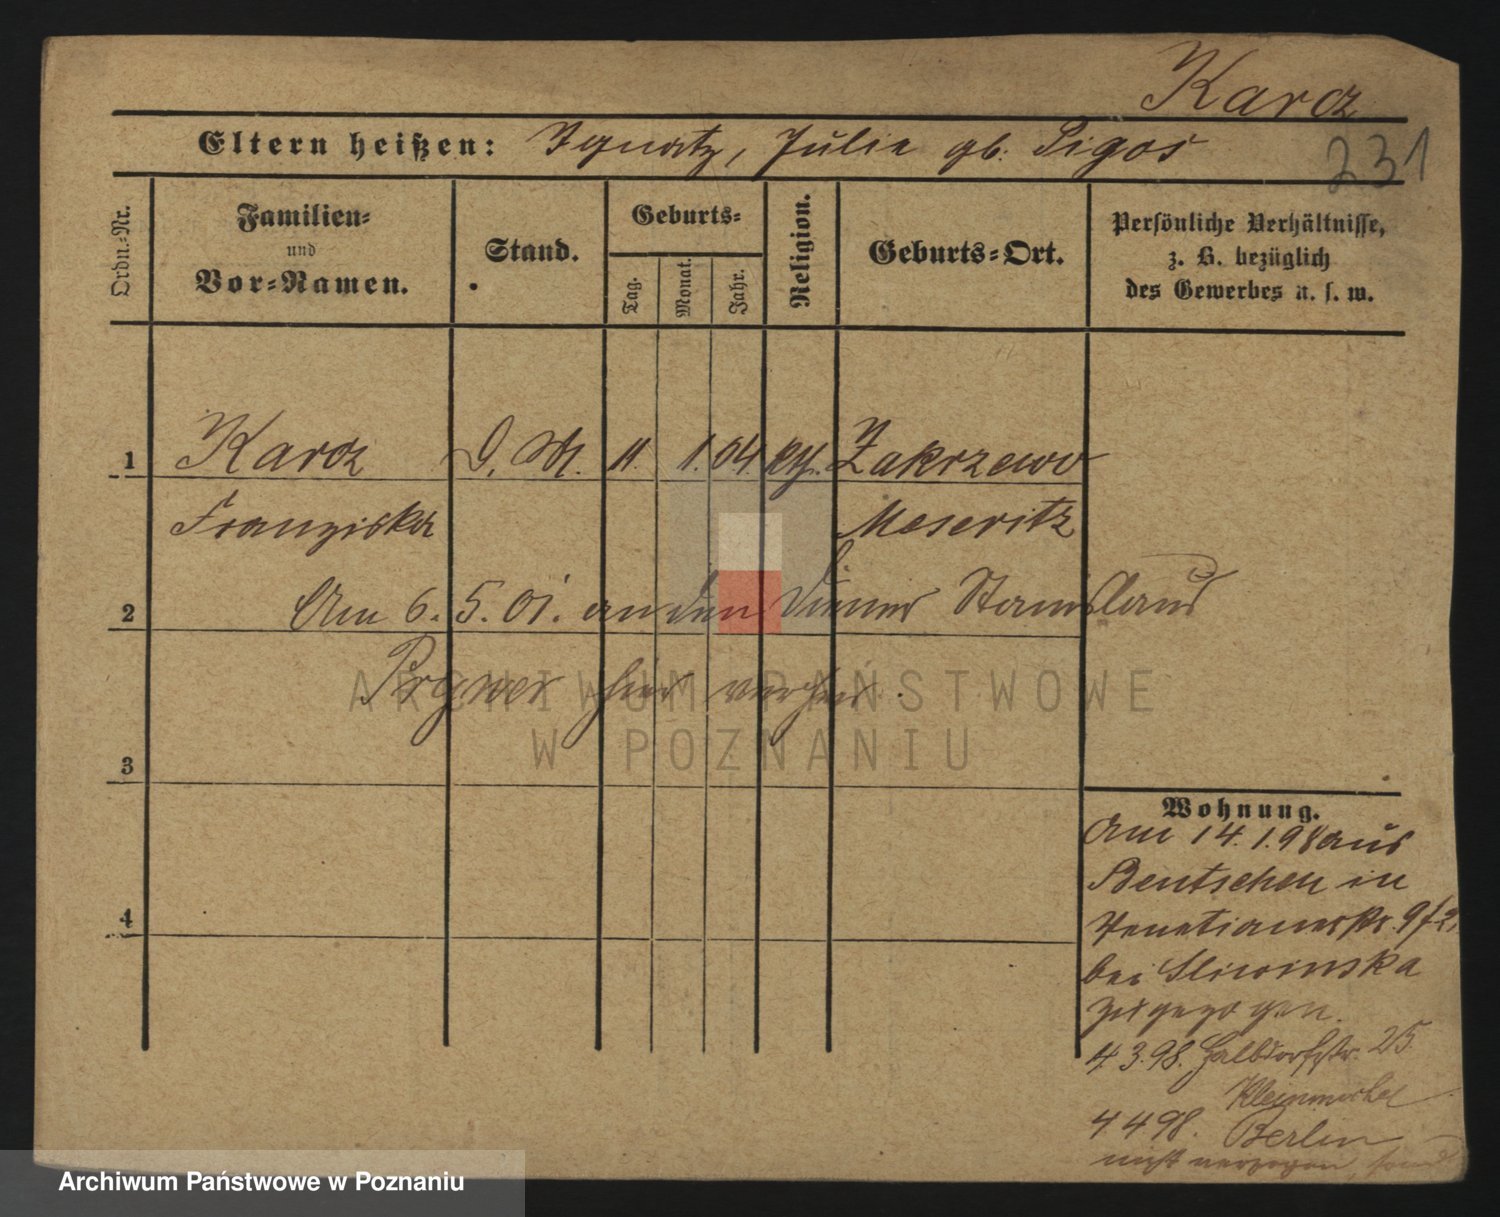 Karcz
Eltern heißen: Ignatz, Julie gb. Pigos
231
Ordn.-Nr.
Familien-
und
Vor-Namen.
Stand.
Geburts-
Tag.
Monat.
Jahr.
Religion.
Geburts-Ort.
Persönliche Verhältnisse,
z. B. bezüglich
des Gewerbes u. s. w.
1 Karcz D. M. 11. 1. 04 kth. Zakrzewo
Franziska Meseritz
2 Am 6. 5. 01. an den Diener Stanislaus
hier verheir.
3
4
Wohnung.
Am 14. 1. 98 aus
Bentschen in
Venetianerstr. 9/2.
bei Sliwinska
zugezogen.
4 3. 98. Halbdorfstr. 25
4 4 98. Berlin
nicht verzogen,
ARCHIWUM PAŃSTWOWE
W POZNANIU
Archiwum Państwowe w Poznaniu